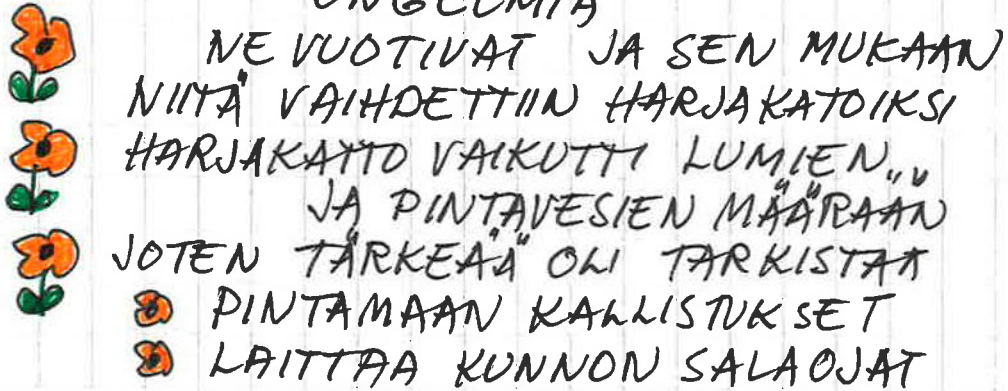 ONGELMIA
NE VUOTIVAT JA SEN MUKAAN
NIITÄ VAIHDETTIIN HARJAKATOIKSI
HARJAKATTO VAIKUTTI LUMIEN
JA PINTAVESIEN MÄÄRÄÄN
JOTEN TÄRKEÄÄ OLI TARKISTAA
PINTAMAAN KALLISTUKSET
LAITTAA KUNNON SALAOJAT